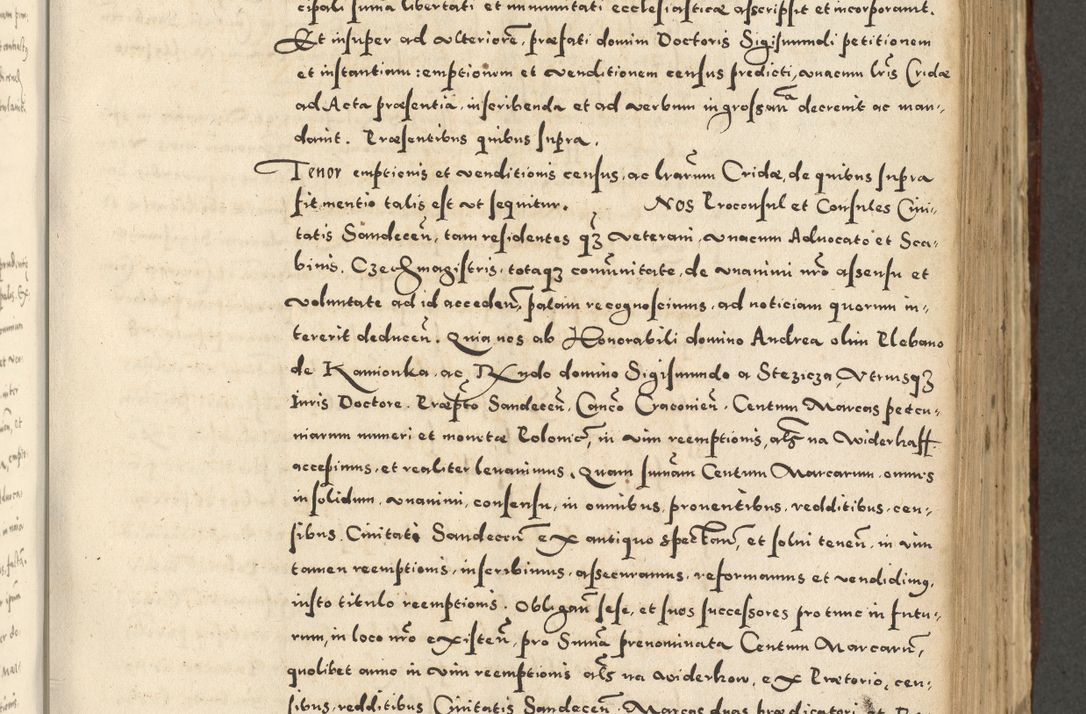 cipali summa libertati et immunitati ecclesiasticæ asscripsit et incorporauit.
Et insuper ad vlteriorē, præfati domini Doctoris Sigismundi petitionem
et instantiam : emptionem et venditionem census predicti, vnacum lr̄is Cridæ
ad Acta præsentia, inscribenda et ad verbum ingrossanā decreuit ac man-
dauit. Præsentibus quibus supra.
Tenor emptionis et venditionis census, ac lrārum Cridæ, de quibus supra
fit mentio talis est vt sequitur. NOS Proconsul et Consules Ciui-
tatis Sandecen̄, tam residentes qz veterani, vnacum Aduocato et Sca-
binis, Czechmagistris, totaqz comūnitate, de vnanimi nr̄o assensu et
voluntate ad id acceden̄, palam recognoscimus, ad noticiam quorum in-
tererit deducen̄. Quia nos ab Honorabili domino Andrea olim Plebano
de Kamionka, ac Rndo domino Sigismundo a Stezicza, Vtriusqz
Iuris Doctore, Præpto Sandecen̄, Canco Cracouien̄, Centum Marcas pecu-
niarum numeri et monetæ Polonicæ, in vim reemptionis, als̄ na Widerkaff
accepimus, et realiter leuauimus, Quam sum̄am Centum Marcarum, omnis
in solidum, vnanimi, consensu, in omnibus, prouentibus, redditibus, cen-
sibus, Ciuitati Sandecen̄ ex antiquo spectan̄, et solui tenen̄, in vim
tamen reemptionis, inscribimus, assecuramus, reformamus et vendidimus,
iusto titulo reemptionis. Obligan̄ sese, et suos successores pro tunc in futu-
rum, in loco nr̄o existen̄, pro Sum̄a prenominata Centum Marcarū,
quolibet anno in vim reemptionis als̄ na widerkow, ex Prætorio, cen-
sibus, redditibus Ciuitatis Sandecen̄, Marcas duas prædicatori, et